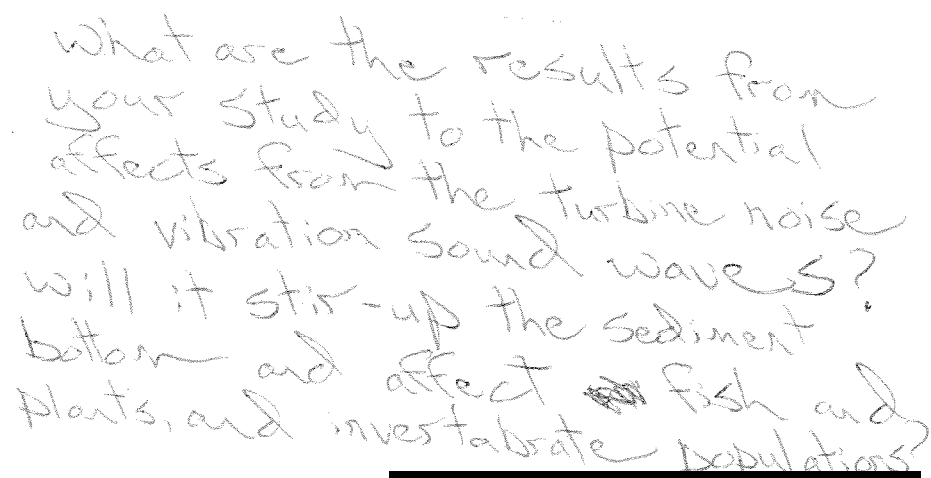 what are the results from
your study to the potential
affects from the turbine noise
and vibration sound waves?
will it stir-up the sediment
bottom and affect fish and
plants, and invertabrate populations?